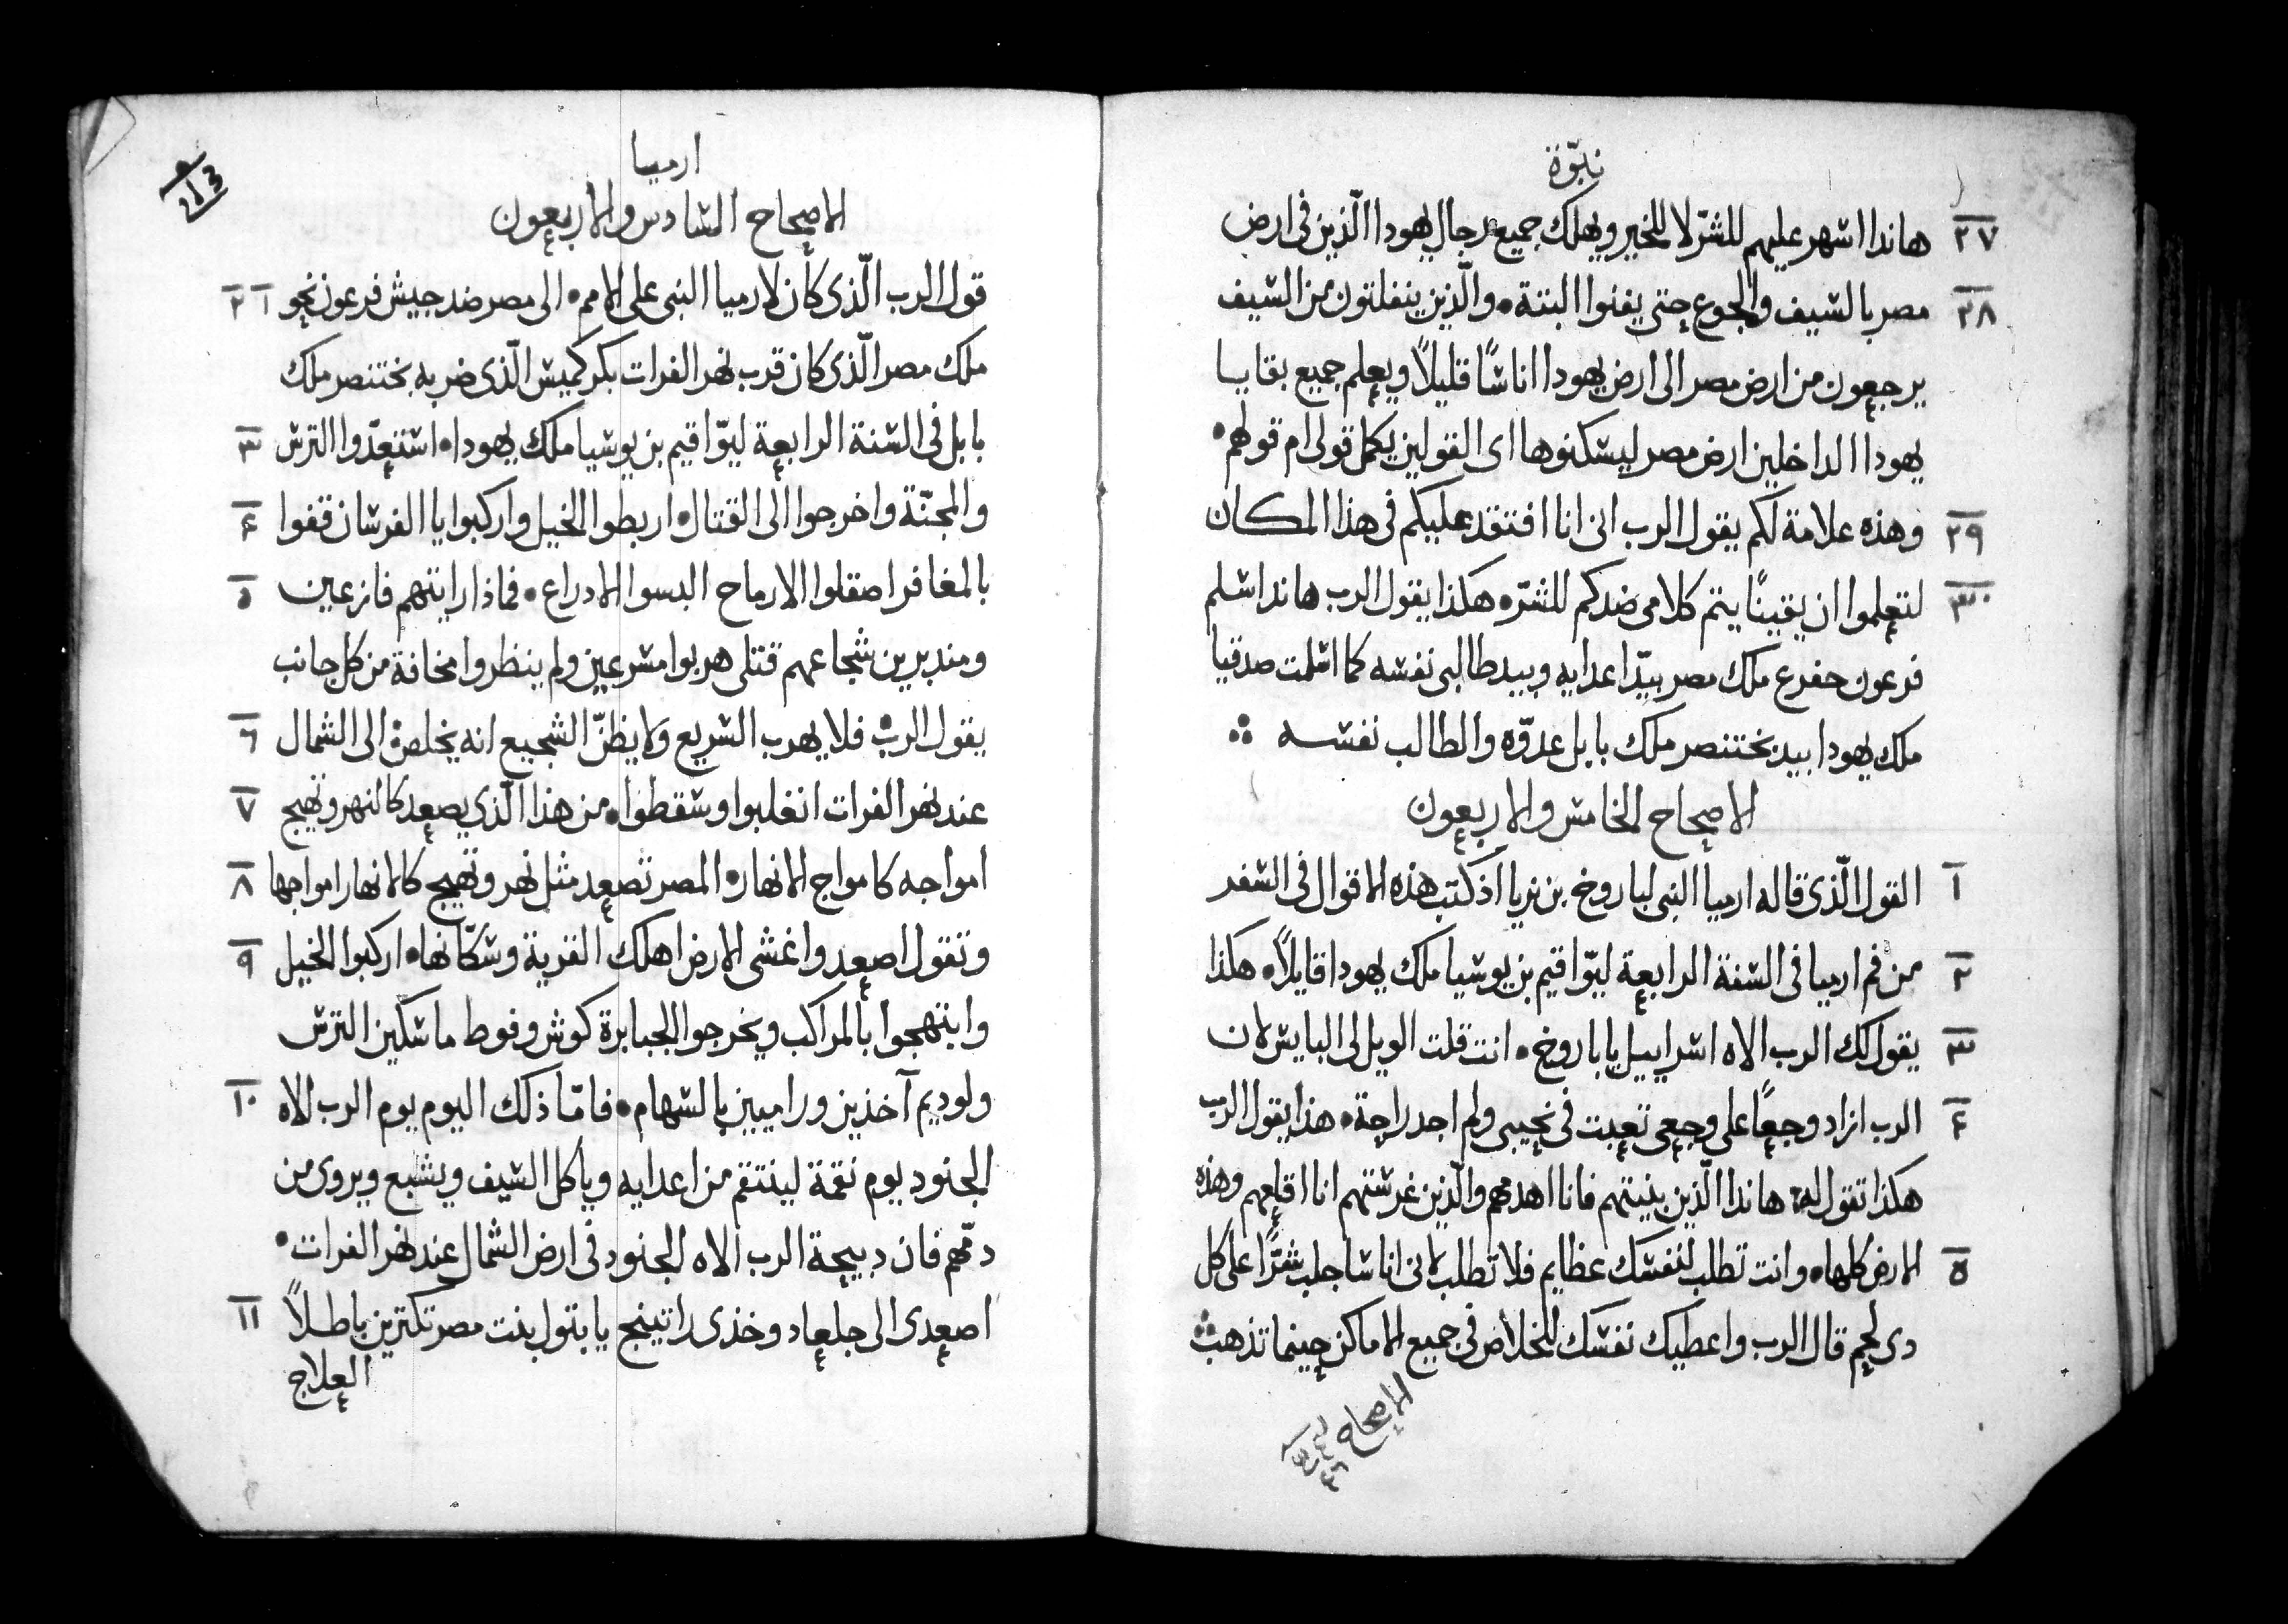 نبّوة
٢٧ هاندا اشهر عليهم للشرّ لا للخير ويهلك جميع رجال يهودا الّذين فى ارض
٢٨ مصر بالسيف والجوع حتى يفنوا البتة • والّذين ينفلتون من السيف
يرجعون من ارض مصر الى ارض يهودا اناسًا قليلاً ويعلم جميع بقايا
يهودا الداخلين ارض مصر ليسكنوها اى القولين يكمل قولى ام قولهم •
٢٩ وهذه علامة لكم يقول الرب انى انا افتقد عليكم فى هذا المكان
٣٠ لتعلموا ان يقينًا يتم كلامى ضدكم للشرّ • هكذا يقول الرب هاندا اسلم
فرعون حفرع ملك مصر بيد اعدايه وبيد طالبى نفسه كما اسلمت صدقيا
ملك يهودا بيد بختنصر ملك بابل عدوّه والطالب نفسه ∴
الاصحاح الخامس والاربعون
١ القول الّذى قاله ارميا النبى لباروخ بن نريا اذ كتب هذه الاقوال فى السفر
٢ من فم ارميا فى السنة الرابعة ليوّاقيم بن يوشيا ملك يهودا قايلاً • هكذا
٣ يقول لك الرب الاه اسراييل ياباروخ • انت قلت الويل لى البايس لان
٤ الرب ازاد وجعًا على وجعى تعبت فى نحيبى ولم اجد راحة • هذا يقول الرب
هكذا تقول له • هاندا الّذين بنيتهم فانا اهدمهم والّذين غرستهم انا اقلعهم وهذه
٥ الارض كلها • وانت تطلب لنفسك عظايم فلا تطلب لانى انا ساجلب شرًّا على كل
دى لحم قال الرب واعطيك نفسك للخلاص فى جميع الاماكن حينما تذهب ∴
الاصحاح
٤٦
213
ارميا
الاصحاح السادس والاربعون
١ ٢ قول الرب الّذى كان لارميا النبى على الامم • الى مصر ضد جيش فرعون نخو
ملك مصر الّذى كان قرب نهر الفرات بكركميش الّذى ضربه بختنصر ملك
٣ بابل فى السنة الرابعة ليوّاقيم بن يوشيا ملك يهودا • استعدّوا الترس
٤ والمجنّة واخرجوا الى القتال • اربطوا الخيل واركبوا يا الفرسان قفوا
٥ بالمغافر اصقلوا الارماح البسوا الادراع • فماذا رايتهم فازعين
ومندبرين شجاعهم قتلى هربوا مسرعين ولم ينظروا مخافة من كل جانب
٦ يقول الرب • فلا يهرب السريع ولا يظنّ الشجيع انه يخلص • الى الشمال
٧ عند نهر الفرات انغلبوا وسقطوا • من هذا الّذى يصعد كالنهر وتهيج
٨ امواجه كامواج الانهار • المصر تصعد مثل نهر وتهيج كالانهار امواجها
٩ وتقول اصعد واغشى الارض اهلك القرية وسكّانها • اركبوا الخيل
وابتهجوا بالمراكب ويخرجوا الجبابرة كوش وفوط ماسكين الترس
١٠ ولوديم آخذين وراميين بالسهام • فامّا ذلك اليوم يوم الرب الاه
الجنود يوم نقمة لينتقم من اعدايه وياكل السيف ويشبع ويروى من
دمّهم فان دبيحة الرب الاه الجنود فى ارض الشمال عند نهر الفرات •
١١ اصعدى الى جلعاد وخذى راتينج يا بتول بنت مصر تكترين باطلاً
العلاج